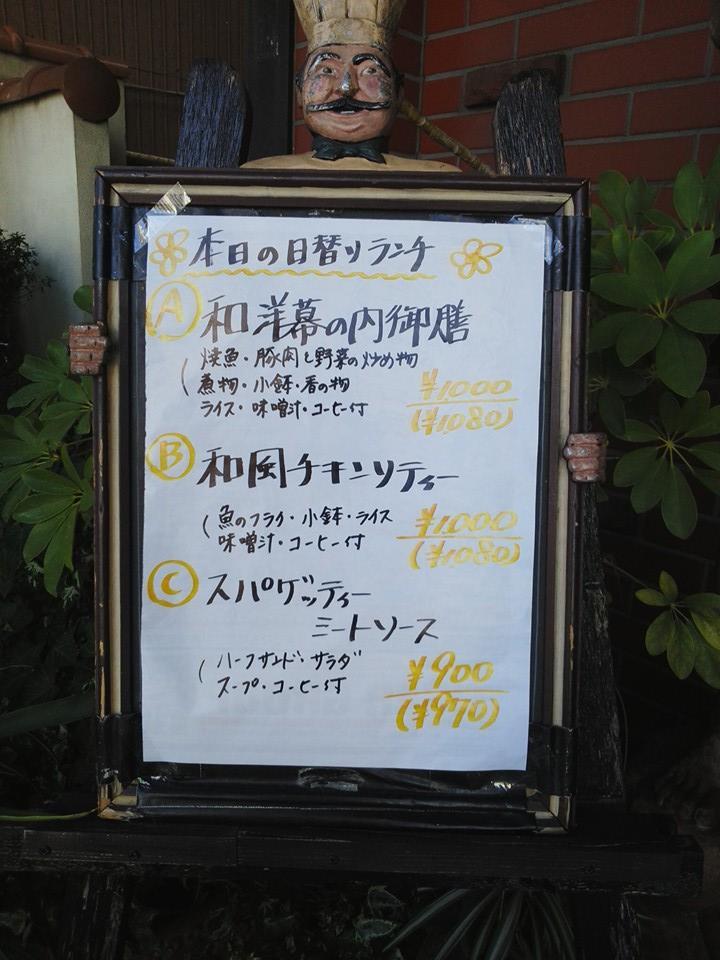 本日の日替りランチ
A 和洋幕の内御膳
(焼魚・豚肉と野菜の炒め物
煮物・小鉢・香の物
ライス・味噌汁・コーヒー付
¥1000
(¥1,080)
B 和風チキンソティー
(魚のフライ・小鉢・ライス
味噌汁・コーヒー付
¥1,000
(¥1,080)
C スパゲッティー
ミートソース
(ハーフサンド・サラダ
スープ・コーヒー付
¥900
(¥970)